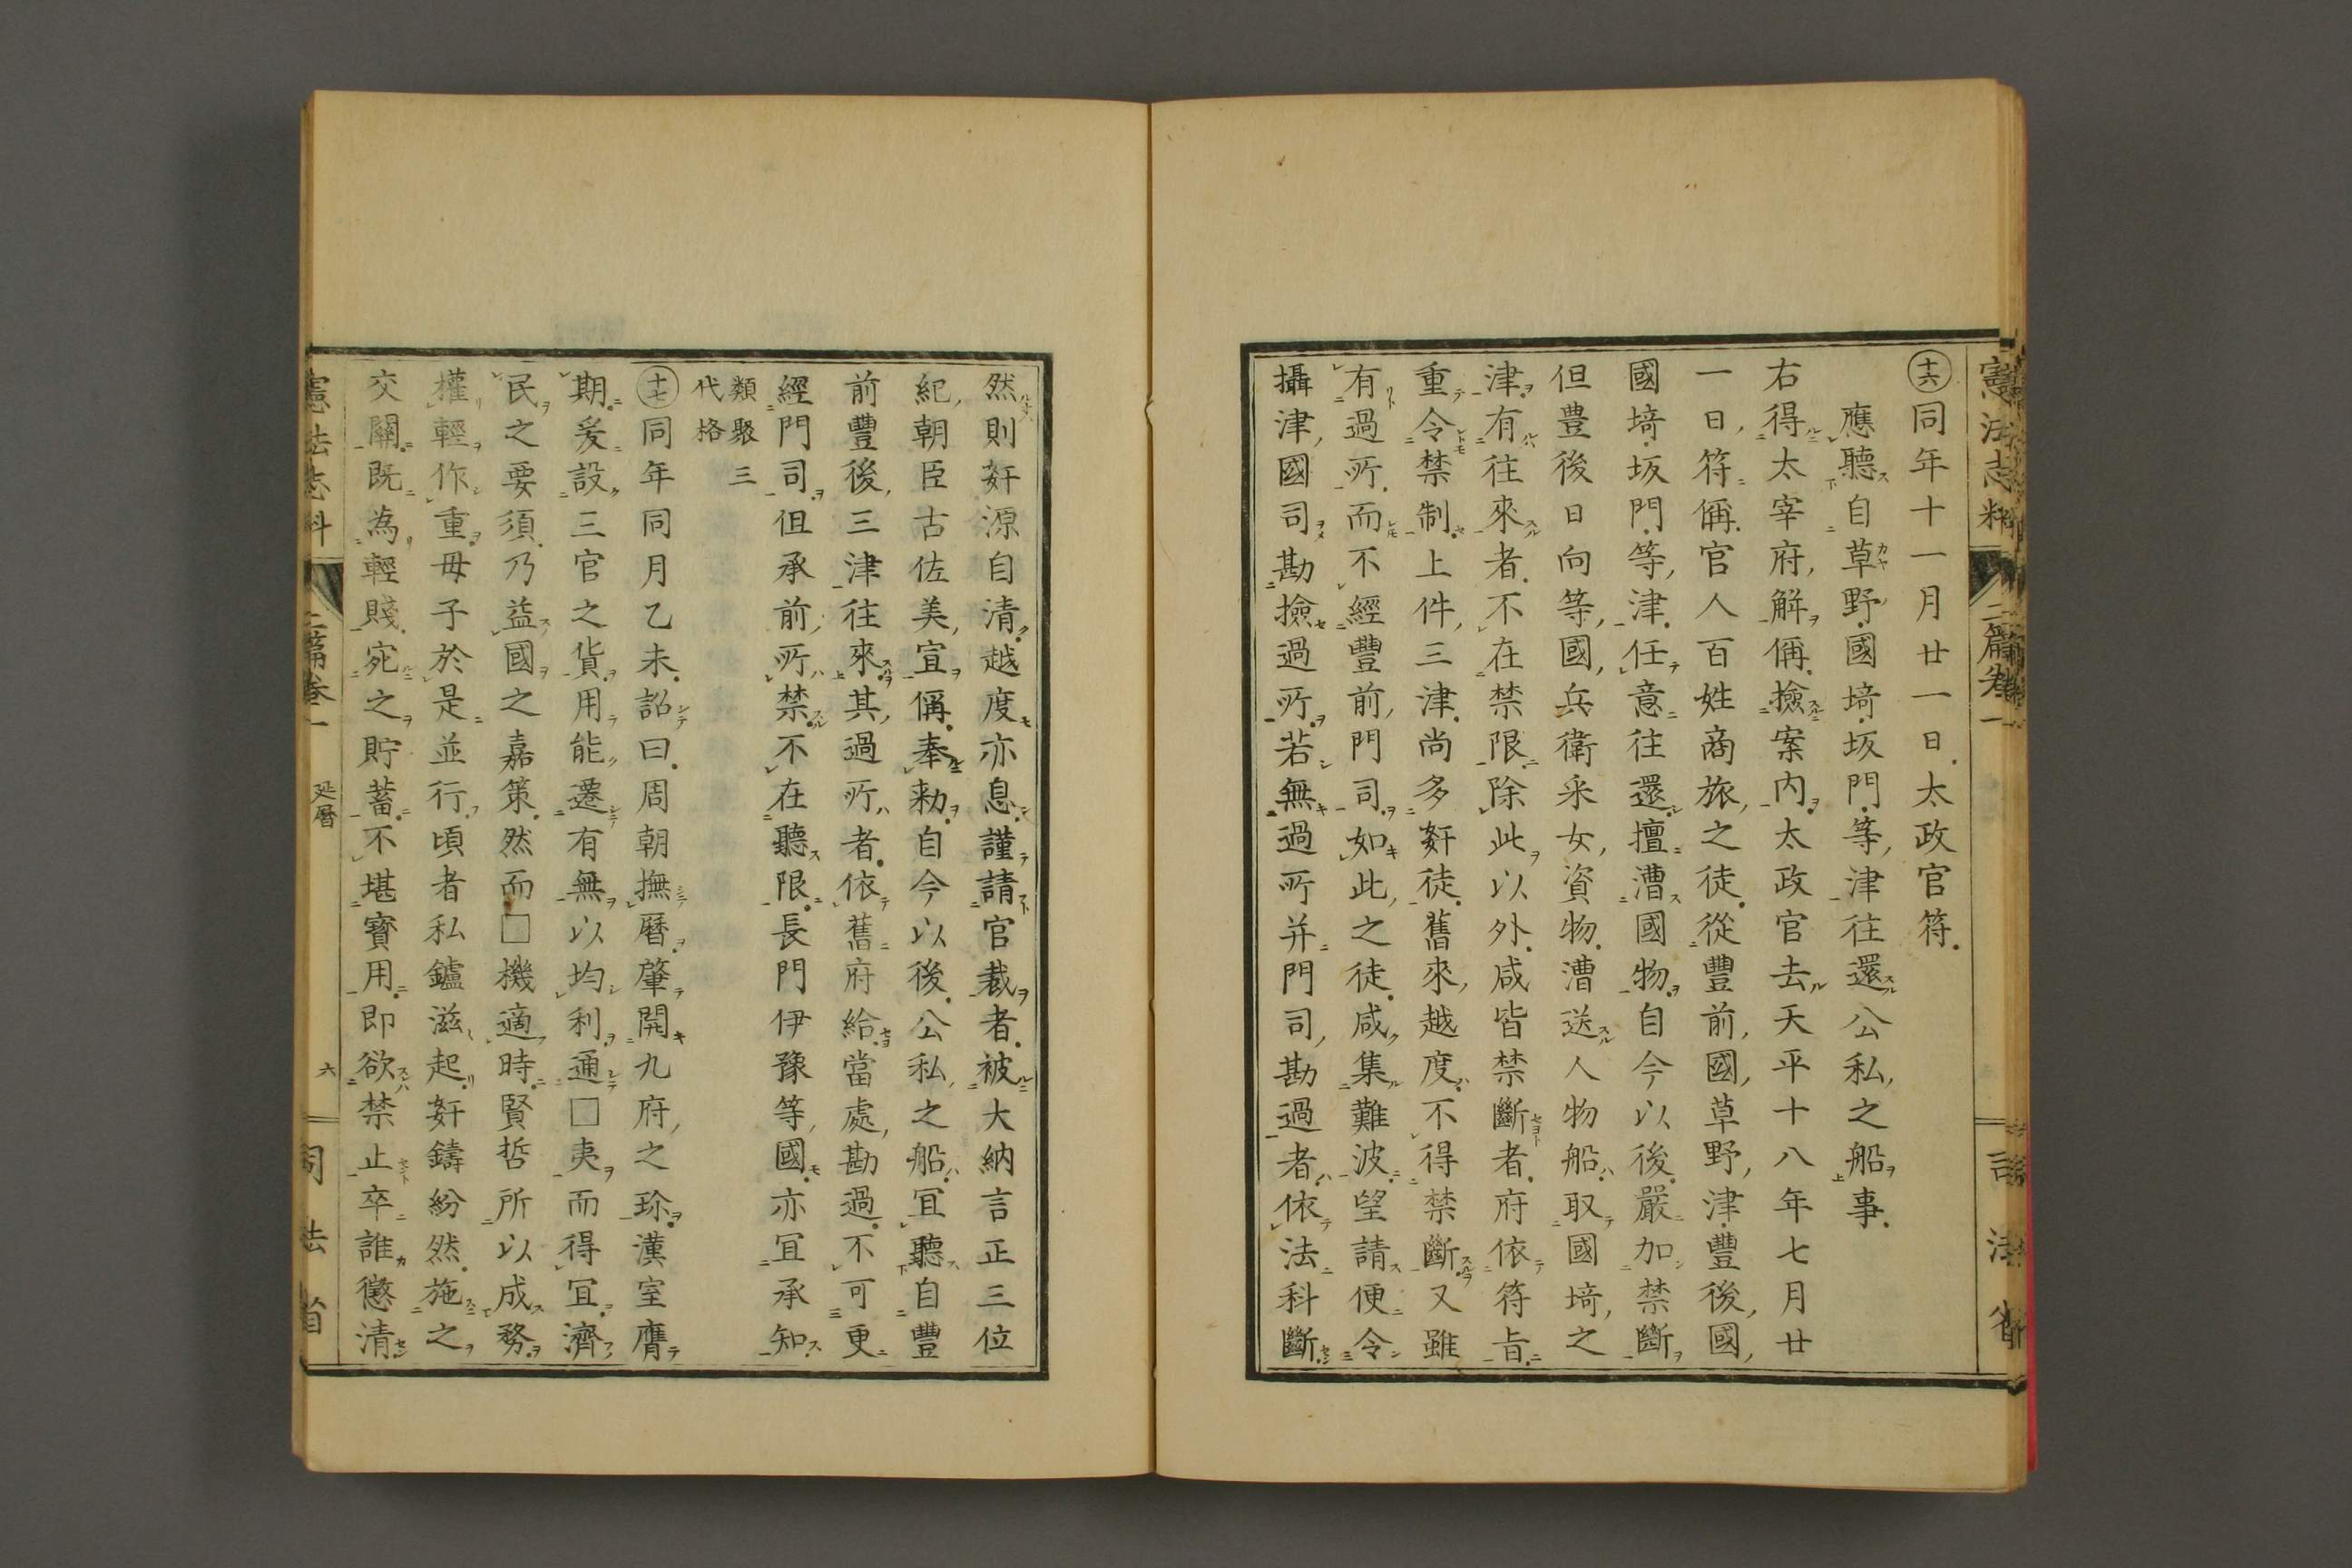 憲法志料 三篇卷一 司法省
十六 同年十一月廿一日太政官符
應聽自草野國埼坂門等津往還公私之船事
右得太宰府解偁撿案内太政官去天平十八年七月廿
一日符偁官人百姓商旅之徒從豐前國草野津豐後國
國埼坂門等津任意往還擅漕國物自今以後嚴加禁斷
但豊後日向等國兵衛采女資物漕送人物船取國埼之
津有往來者不在禁限除此以外咸皆禁斷者府依符旨
重令禁制上件三津尚多姧徒舊來越度不得禁斷又雖
有過所而不經豐前門司如此之徒咸集難波望請便令
攝津國司勘撿過所若無過所并門司勘過者依法科斷
然則姧源自清越度亦息謹請官裁者被大納言正三位
紀朝臣古佐美宣偁奉勅自今以後公私之船宜聽自豐
前豐後三津往來其過所者依舊府給當處勘過不可更
經門司但承前所禁不在聽限長門伊豫等國亦宜承知
類聚三
代格
十七 同年同月乙未詔曰周朝撫曆肇開九府之珎漢室膺
期爰設三官之貨用能遷有無以均利通□夷而得宜濟
民之要須乃益國之嘉策然而□機適時賢哲所以成務
權輕作重毋子於是並行頃者私鑪滋起姧鑄紛然施之
交關既為輕賤宛之貯蓄不堪寳用即欲禁止卒誰懲清
憲法志料 三篇卷一 延曆 六 司法省